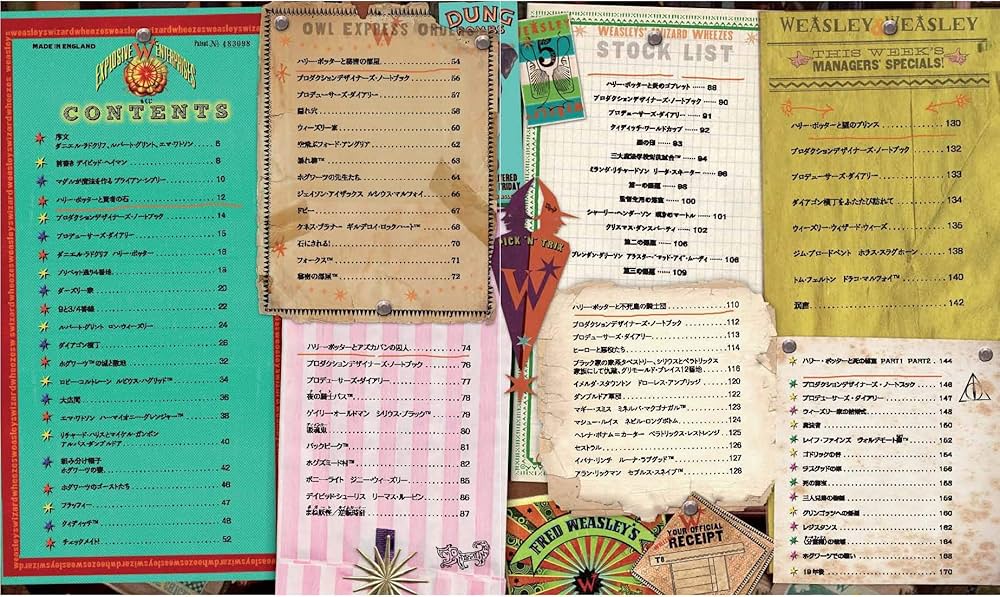 MADE IN ENGLAND
Patent No 483998
EXPLOSIVE ENTERPRISES
W
もくじ
CONTENTS
序文
ダニエル・ラドクリフ、ルパート・グリント、エマ・ワトソン 6
前書き デイビッド・ヘイマン 8
マグルが魔法を作る ブライアン・シブリー 10
ハリー・ポッターと賢者の石 12
プロダクションデザイナーズ・ノートブック 14
プロデューサーズ・ダイアリー 15
ダニエル・ラドクリフ ハリー・ポッター 16
プリベット通り4番地 18
ダーズリー家 20
9と3/4番線 22
ルパート・グリント ロン・ウィーズリー 24
ダイアゴン横丁 26
ホグワーツ™の城と敷地 32
ロビー・コルトレーン ルビウス・ハグリッド™ 34
大広間 36
エマ・ワトソン ハーマイオニー・グレンジャー™ 38
リチャード・ハリスとマイケル・ガンボン
アルバス・ダンブルドア 40
組み分け帽子
ホグワーツの寮 42
ホグワーツのゴーストたち 46
フラッフィー 47
クィディッチ™ 48
チェックメイト! 52
OWL EXPRESS ORDER
ハリー・ポッターと秘密の部屋 54
プロダクションデザイナーズ・ノートブック 56
プロデューサーズ・ダイアリー 57
隠れ穴 58
ウィーズリー家 60
空飛ぶフォード・アングリア 62
暴れ柳™ 63
ホグワーツの先生たち 64
ジェイソン・アイザックス ルシウス・マルフォイ 66
ドビー 67
ケネス・ブラナー ギルデロイ・ロックハート™ 68
石にされる! 70
フォークス™ 71
秘密の部屋™ 72
ハリー・ポッターとアズカバンの囚人 74
プロダクションデザイナーズ・ノートブック 76
プロデューサーズ・ダイアリー 77
夜の騎士バス™ 78
ゲイリー・オールドマン シリウス・ブラック™ 79
吸魂鬼 80
バックビーク™ 81
ホグズミード村™ 82
ボニー・ライト ジニー・ウィーズリー 85
デイビッド・シューリス リーマス・ルーピン 86
まね妖怪/逆転時計 87
DUNG
WEASLEYS' WIZARD WHEEZES
STOCK LIST
ハリー・ポッターと炎のゴブレット 88
プロダクションデザイナーズ・ノートブック 90
プロデューサーズ・ダイアリー 91
クィディッチ・ワールドカップ 92
闇の印 93
三大魔法学校対抗試合™ 94
ミランダ・リチャードソン リータ・スキーター 96
第一の課題 98
監督生用の浴室 100
シャーリー・ヘンダーソン 嘆きのマートル 101
クリスマス・ダンスパーティ 102
第二の課題 106
ブレンダン・グリーソン アラスター・マッド-アイ・ムーディ 106
第三の課題 109
PICK 'N' TRIX
W
ハリー・ポッターと不死鳥の騎士団 110
プロダクションデザイナーズ・ノートブック 112
プロデューサーズ・ダイアリー 113
ヒーローと悪役たち 114
ブラック家の家系タペストリー、シリウスとベラトリックス
家族にして仇敵、グリモールド・プレイス12番地 116
イメルダ・スタウントン ドローレス・アンブリッジ 120
ダンブルドア軍団 122
マギー・スミス ミネルバ・マクゴナガル™ 123
マシュー・ルイス ネビル・ロングボトム 124
ヘレナ・ボナム=カーター ベラトリックス・レストレンジ 125
セストラル 126
イバナ・リンチ ルーナ・ラブグッド™ 127
アラン・リックマン セブルス・スネイプ™ 128
FRED WEASLEY'S
W
YOUR OFFICIAL
RECEIPT
TO
WEASLEY & WEASLEY
THIS WEEK'S
MANAGERS' SPECIALS!
ハリー・ポッターと謎のプリンス 130
プロダクションデザイナーズ・ノートブック 132
プロデューサーズ・ダイアリー 133
ダイアゴン横丁をふたたび訪れて 134
ウィーズリー・ウィザード・ウィーズ 135
ジム・ブロードベント ホラス・スラグホーン 138
トム・フェルトン ドラコ・マルフォイ™ 140
洞窟 142
ハリー・ポッターと死の秘宝 PART1 PART2 144
プロダクションデザイナーズ・ノートブック 146
プロデューサーズ・ダイアリー 147
ウィーズリー家の結婚式 148
レイフ・ファインズ ヴォルデモート卿™ 152
ゴドリックの谷 154
死の秘宝 158
グリンゴッツへの侵入 160
レジスタンス 162
ホグワーツでの戦い 168
19年後 170